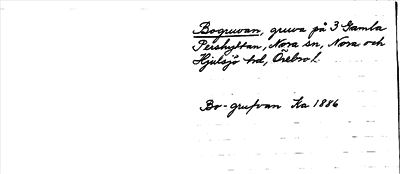 Bogruvan, gruva på 3 Gamla
Pershyttan, Nora sn, Nora och
Hjulsjö hd, Örebro l.
Bo-grufvan Ka 1886